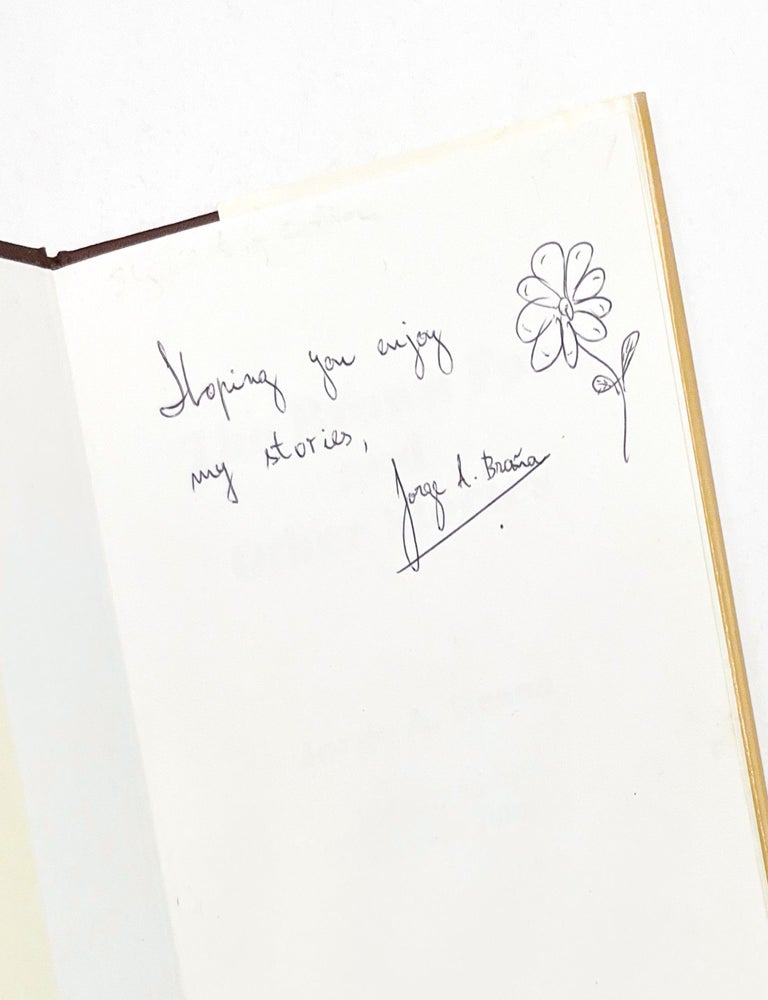 Hoping you enjoy
my stories,
Jorge A. Braña